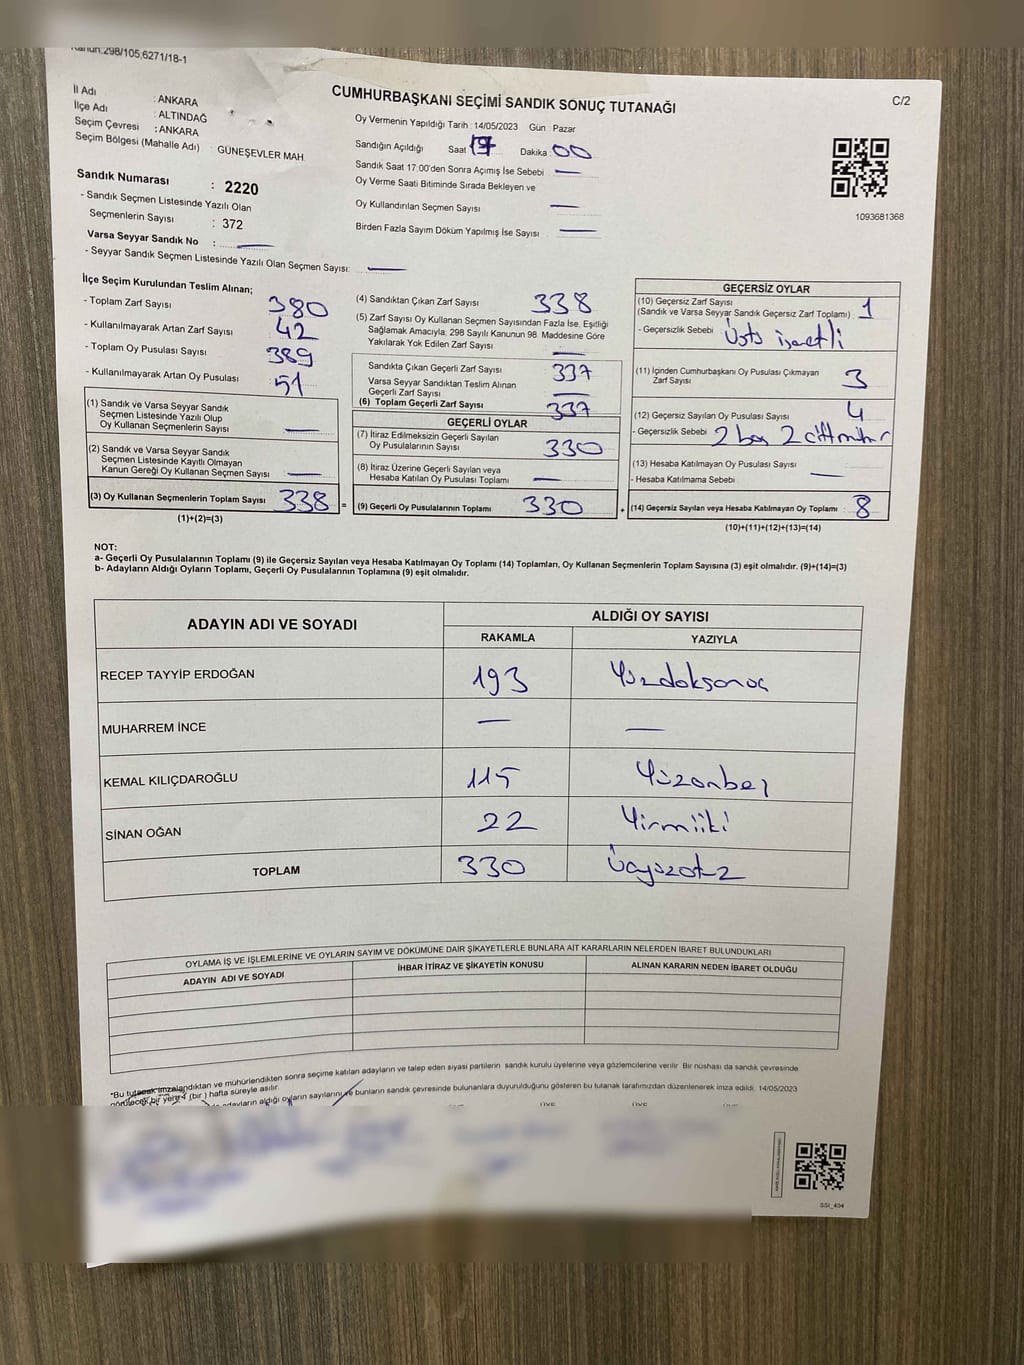 Kanun:298/105,6271/18-1
C/2
CUMHURBAŞKANI SEÇİMİ SANDIK SONUÇ TUTANAĞI
İl Adı : ANKARA
İlçe Adı : ALTINDAĞ
Seçim Çevresi : ANKARA
Seçim Bölgesi (Mahalle Adı) : GÜNEŞEVLER MAH.
Sandık Numarası : 2220
- Sandık Seçmen Listesinde Yazılı Olan
Seçmenlerin Sayısı : 372
Varsa Seyyar Sandık No : —
- Seyyar Sandık Seçmen Listesinde Yazılı Olan Seçmen Sayısı: —
Oy Vermenin Yapıldığı Tarih :14/05/2023 Gün : Pazar
Sandığın Açıldığı Saat Dakika : 00
Sandık Saat 17:00'den Sonra Açımış İse Sebebi —
Oy Verme Saati Bitiminde Sırada Bekleyen ve
Oy Kullandırılan Seçmen Sayısı —
Birden Fazla Sayım Döküm Yapılmış İse Sayısı —
1093681368
İlçe Seçim Kurulundan Teslim Alınan;
- Toplam Zarf Sayısı 380
- Kullanılmayarak Artan Zarf Sayısı 42
- Toplam Oy Pusulası Sayısı 389
- Kullanılmayarak Artan Oy Pusulası 51
(1) Sandık ve Varsa Seyyar Sandık
Seçmen Listesinde Yazılı Olup
Oy Kullanan Seçmenlerin Sayısı —
(2) Sandık ve Varsa Seyyar Sandık
Seçmen Listesinde Kayıtlı Olmayan
Kanun Gereği Oy Kullanan Seçmen Sayısı —
(3) Oy Kullanan Seçmenlerin Toplam Sayısı 338 =
(1)+(2)=(3)
(4) Sandıktan Çıkan Zarf Sayısı 338
(5) Zarf Sayısı Oy Kullanan Seçmen Sayısından Fazla İse, Eşitliği
Sağlamak Amacıyla; 298 Sayılı Kanunun 98. Maddesine Göre
Yakılarak Yok Edilen Zarf Sayısı —
Sandıkta Çıkan Geçerli Zarf Sayısı 337
Varsa Seyyar Sandıktan Teslim Alınan
Geçerli Zarf Sayısı —
(6) Toplam Geçerli Zarf Sayısı 337
GEÇERLİ OYLAR
(7) İtiraz Edilmeksizin Geçerli Sayılan
Oy Pusulalarının Sayısı 330
(8) İtiraz Üzerine Geçerli Sayılan veya
Hesaba Katılan Oy Pusulası Toplamı —
(9) Geçerli Oy Pusulalarının Toplamı 330 +
GEÇERSİZ OYLAR
(10) Geçersiz Zarf Sayısı 1
(Sandık ve Varsa Seyyar Sandık Geçersiz Zarf Toplamı)
- Geçersizlik Sebebi Üstü işaretli
(11) İçinden Cumhurbaşkanı Oy Pusulası Çıkmayan
Zarf Sayısı 3
(12) Geçersiz Sayılan Oy Pusulası Sayısı 4
- Geçersizlik Sebebi 2 boş 2 çift mühür
(13) Hesaba Katılmayan Oy Pusulası Sayısı —
- Hesaba Katılmama Sebebi
(14) Geçersiz Sayılan veya Hesaba Katılmayan Oy Toplamı : 8
(10)+(11)+(12)+(13)=(14)
NOT:
a- Geçerli Oy Pusulalarının Toplamı (9) ile Geçersiz Sayılan veya Hesaba Katılmayan Oy Toplamı (14) Toplamları, Oy Kullanan Seçmenlerin Toplam Sayısına (3) eşit olmalıdır. (9)+(14)=(3)
b- Adayların Aldığı Oyların Toplamı, Geçerli Oy Pusulalarının Toplamına (9) eşit olmalıdır.
ADAYIN ADI VE SOYADI ALDIĞI OY SAYISI
RAKAMLA YAZIYLA
RECEP TAYYİP ERDOĞAN 193 Yüzdoksanüç
MUHARREM İNCE — —
KEMAL KILIÇDAROĞLU 115 Yüzonbeş
SİNAN OĞAN 22 Yirmiiki
TOPLAM 330 Üçyüzotuz
OYLAMA İŞ VE İŞLEMLERİNE VE OYLARIN SAYIM VE DÖKÜMÜNE DAİR ŞİKAYETLERLE BUNLARA AİT KARARLARIN NELERDEN İBARET BULUNDUKLARI
ADAYIN ADI VE SOYADI İHBAR İTİRAZ VE ŞİKAYETİN KONUSU ALINAN KARARIN NEDEN İBARET OLDUĞU
"Bu tutanak imzalandıktan ve mühürlendikten sonra seçime katılan adayların ve talep eden siyasi partilerin sandık kurulu üyelerine veya gözlemcilerine verilir. Bir nüshası da sandık çevresinde
görülecek bir yere 1 (bir ) hafta süreyle asılır.
adayların aldığı oyların sayılarını ve bunların sandık çevresinde bulunanlara duyurulduğunu gösteren bu tutanak tarafımızdan düzenlenerek imza edildi. 14/05/2023
ÜYE ÜYE ÜYE
SSI_404